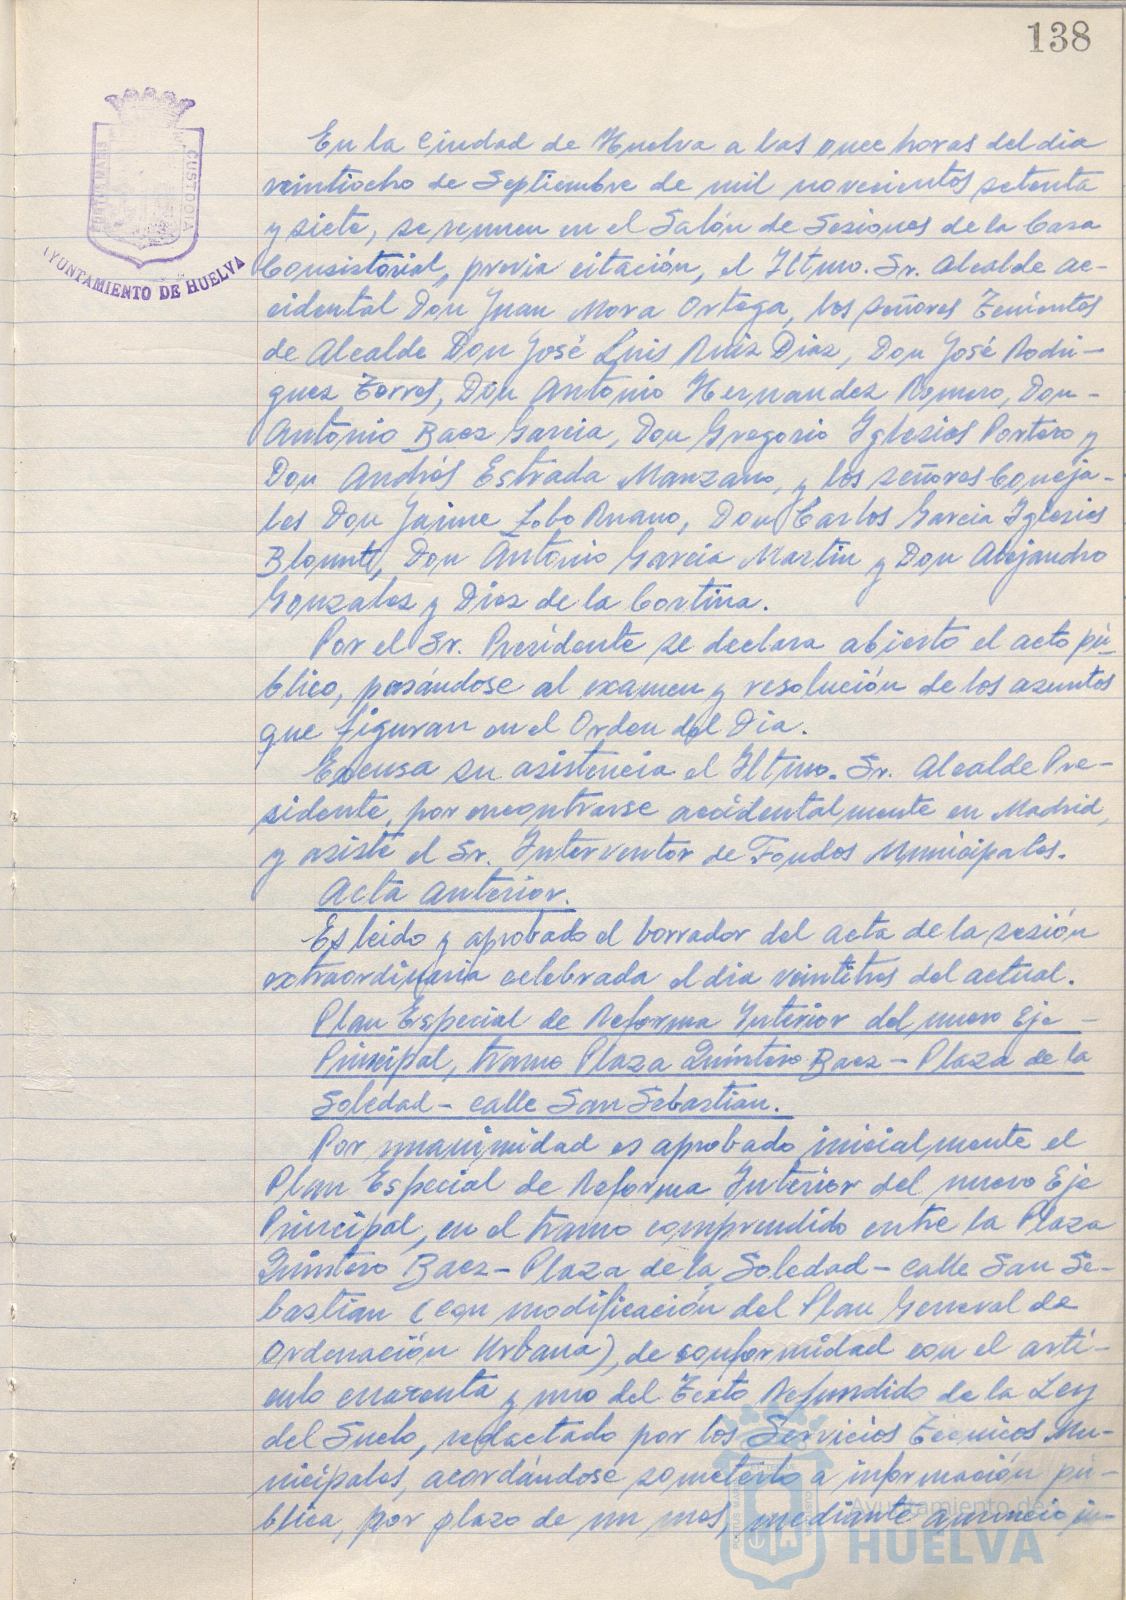 138
PORTUS MARIS
CUSTODIA
AYUNTAMIENTO DE HUELVA
En la Ciudad de Huelva a las once horas del dia
veintiocho de Septiembre de mil novecientos setenta
y siete, se reunen en el Salón de Sesiones de la Casa
Consistorial, previa citación, el Iltmo. Sr. Alcalde ac-
cidental Don Juan Mora Ortega, los señores Tenientes
de Alcalde Don José Luis Ruiz Diaz, Don José Rodri-
guez Torres, Don Antonio Hernandez Romero, Don-
Antonio Baez Garcia, Don Gregorio Iglesias Portero y
Don Andrés Estrada Manzano, y los señores Conceja-
les Don Jaime Lobo Ruano, Don Carlos Garcia Iglesias
Don Antonio Garcia Martin y Don Alejandro
Gonzalez y Diez de la Cortina.
Por el Sr. Presidente se declara abierto el acto pú-
blico, pasándose al examen y resolución de los asuntos
que figuran en el Orden del Dia.
Excusa su asistencia el Iltmo. Sr. Alcalde Pre-
sidente, por encontrarse accidentalmente en Madrid,
y asiste el Sr. Interventor de Fondos Municipales.
Acta anterior.
Es leido y aprobado el borrador del acta de la sesión
extraordinaria celebrada el dia veintitres del actual.
Plan Especial de Reforma Interior del nuevo Eje -
Principal, tramo Plaza Quintero Baez - Plaza de la
Soledad - calle San Sebastian.
Por unanimidad es aprobado inicialmente el
Plan Especial de Reforma Interior del nuevo Eje
Principal, en el tramo comprendido entre la Plaza
Quintero Baez - Plaza de la Soledad - calle San Se-
bastian (con modificación del Plan General de
Ordenación Urbana), de conformidad con el arti-
culo cuarenta y uno del Texto Refundido de la Ley
del Suelo, redactado por los Servicios Tecnicos Mu-
nicipales, acordándose someterlo a información pú-
blica, por plazo de un mes, mediante anuncio in-
Ayuntamiento de
HUELVA